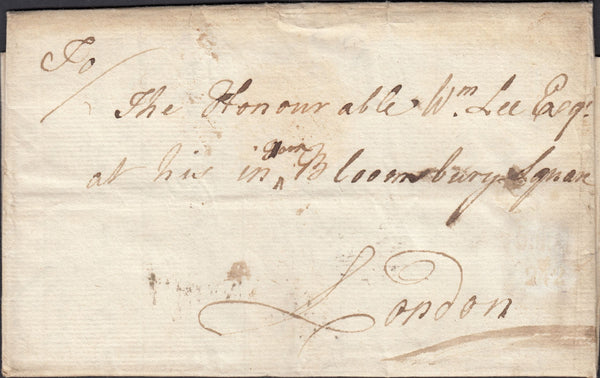 To
The Honourable Wm. Lee Esqr.
at his in Bloomsbury Square
London